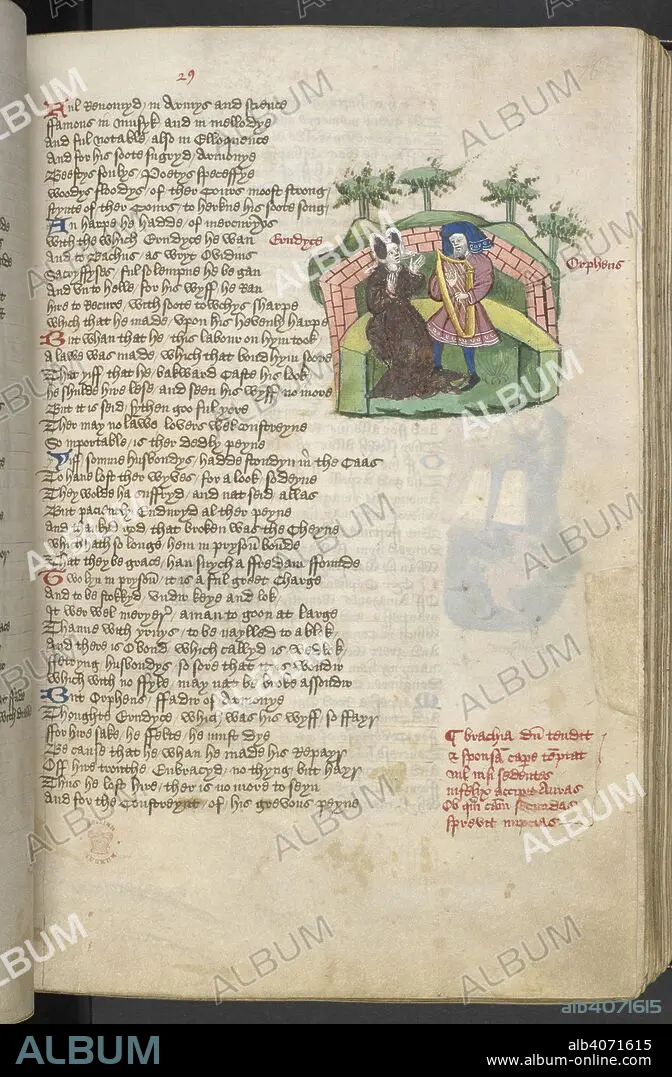 29
76
Ful Renomyd / in Armys and science
ffamous in musyk and in mellodye
And ful notable also in Elloquence
And for his soote sugryd Armonye
Beestys foulys Poetys speceffye
Woodys fflodys / of ther Cours moost strong /
Stynte of ther Cours / to herkne his soote song /
An harpe he hadde / of mercuryus
With the which Erudyce he wan
Erudyce
And to Bachus / as wryt Ovidius
Sacryfises / ful solempne he be gan
And vnto helle / for his wyff he Ran
hire to Recure / with soote towchys sharpe
Which that he made / vpon his hevenly harpe
Orpheus
But whan that he / this labour on hym took
A lawe was made / which that bond hym soore
That yiff that he bakward Caste his look
he shulde hire lese / and seen his wyff no more
But it is seid / sythen goo ful yore
Ther may no lawe lovers wel constreyne
So inportable / is ther dedly peyne
Yiff somme husbondys / hadde stondyn in the Caas
To haue lost ther wyves / for a look sodeyne
They wolde ha suffryd / and nat seid allas
But pacienly Enduryd al ther peyne
And thankyd god / that broken was the Cheyne
Which hath so longe / hem in prysoun bounde
That they be grace / han suych a ffredam ffounde
To lyn in prysoun / it is a ful greet Charge
And to be stokkyd / vndir keye and lok
It wer wel meryer / a man to goon at large
Thanne with yrnys / to be naylled to a blok
And there is O bond / which callyd is wedlok
ffetryng husbondys / so sore that it is wondir
Which with no ffyle / may nat be broke assondir
But Orpheus / ffadir of Armonye
Thoughte Erudyce / which was his wyff so ffayr
ffor hire sake / he ffelte he must dye
Be cause that he whan he made his Repayr
Off hire trouthe Enbracyd / no thyng but hayr
Thus he lost hire / ther is no more to seyn
And for the Constreynt / of his grevous peyne
brachia dum tendit
& sponsam cape temptat
nil nisi sedentes
infelix accipit Auras
Ob quam cam secundas
sprevit nupcias
MUSEUM
ALBUM
alb4071615
ALBUM
alb4071615
www.album-online.com